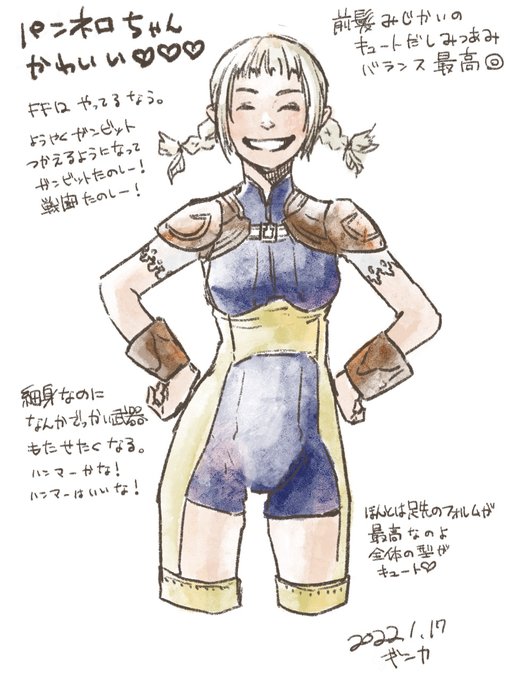 パンネロちゃん
かわいい♡♡♡
前髪みじかいの
キュートだしみつあみ
バランス最高◎
FF12 やってるなう。
ようやくガンビット
つかえるようになって
ガンビットたのしー!
戦闘たのしー!
細身なのに
なんかでっかい武器
もたせたくなる。
ハンマーかな!
ハンマーはいいな!
ほんとは足先のフォルムが
最高なのよ
全体の型が
キュート♡
2022.1.17
ギンカ